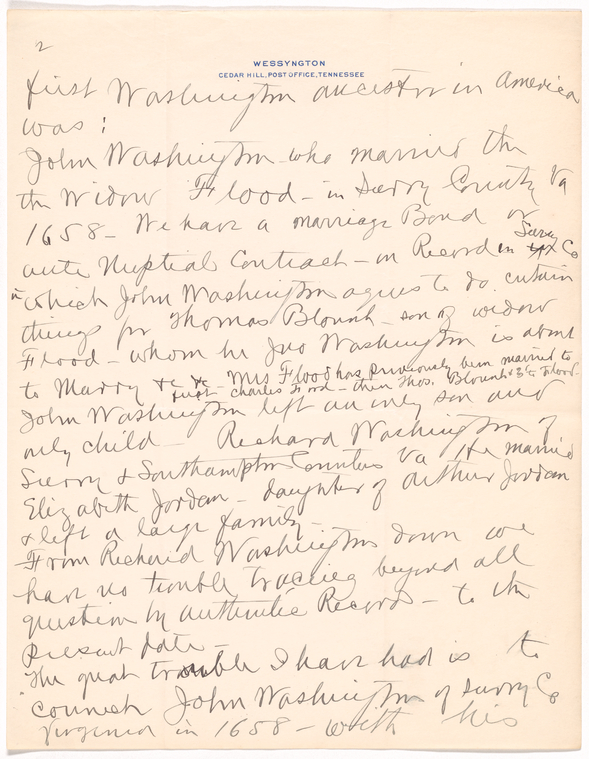 2
WESSYNGTON
CEDAR HILL, POST OFFICE, TENNESSEE
first Washington ancestor in America
was:
John Washington who married the
the Widow Flood - in Surry County Va
1658 - We have a marriage Bond or
ante Nuptial Contract - on Record in Surry Co
"in which John Washington agrees to do certain
things for Thomas Blount - son of widow
Flood - whom he Jno Washington is about
to Marry &c &c - Mrs Flood has previously been married to
first Charles Ford - then Thos. Blount & 3d to Flood -
John Washington left an only son and
only child - Richard Washington of
Surry & Southampton Counties Va He married
Elizabeth Jordan - daughter of Arthur Jordan
& left a large family -
From Richard Washington down we
have no trouble tracing beyond all
question by authentic Record - to the
present date -
The great trouble I have had is to
connect John Washington of Surry Co
Virginia in 1658 - with his